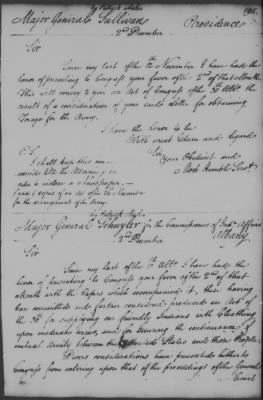 by Patrick Maher
Major General Sullivan Providence
2d December
Sir
Since my last of the 7th November I have had the
honor of presenting to Congress your favor of the 2nd of that Month
This will convey to you an Act of Congress of the 30 Ulto the
result of a consideration of your said letter for obtaining
Forage for the Army.
I have the honor to be
With great Esteem and Regard
Sir Your Obedient and
Most Humble Servt
P.S.
I shall keep this un-
sealed till the Morning in
order to inclose a Newspaper
for the arrangement of the Army.
by Patrick Maher
Major General Schuyler in the Commissioners of Indn Affairs
2nd December Albany
Sir
Since my last of the Ulto I have had the
honor of presenting to Congress your favor of the 2nd of that
Month with the Papers which accompanied it, these having
been committed and further considered produced an Act of
the 30 for supplying our friendly Indians with Cloathing
upon moderate terms, and for securing the continuance of
mutual Amity between the United States and those People.
Divers considerations have prevented hitherto
Congress from entering upon that of the proceedings of the General
Court